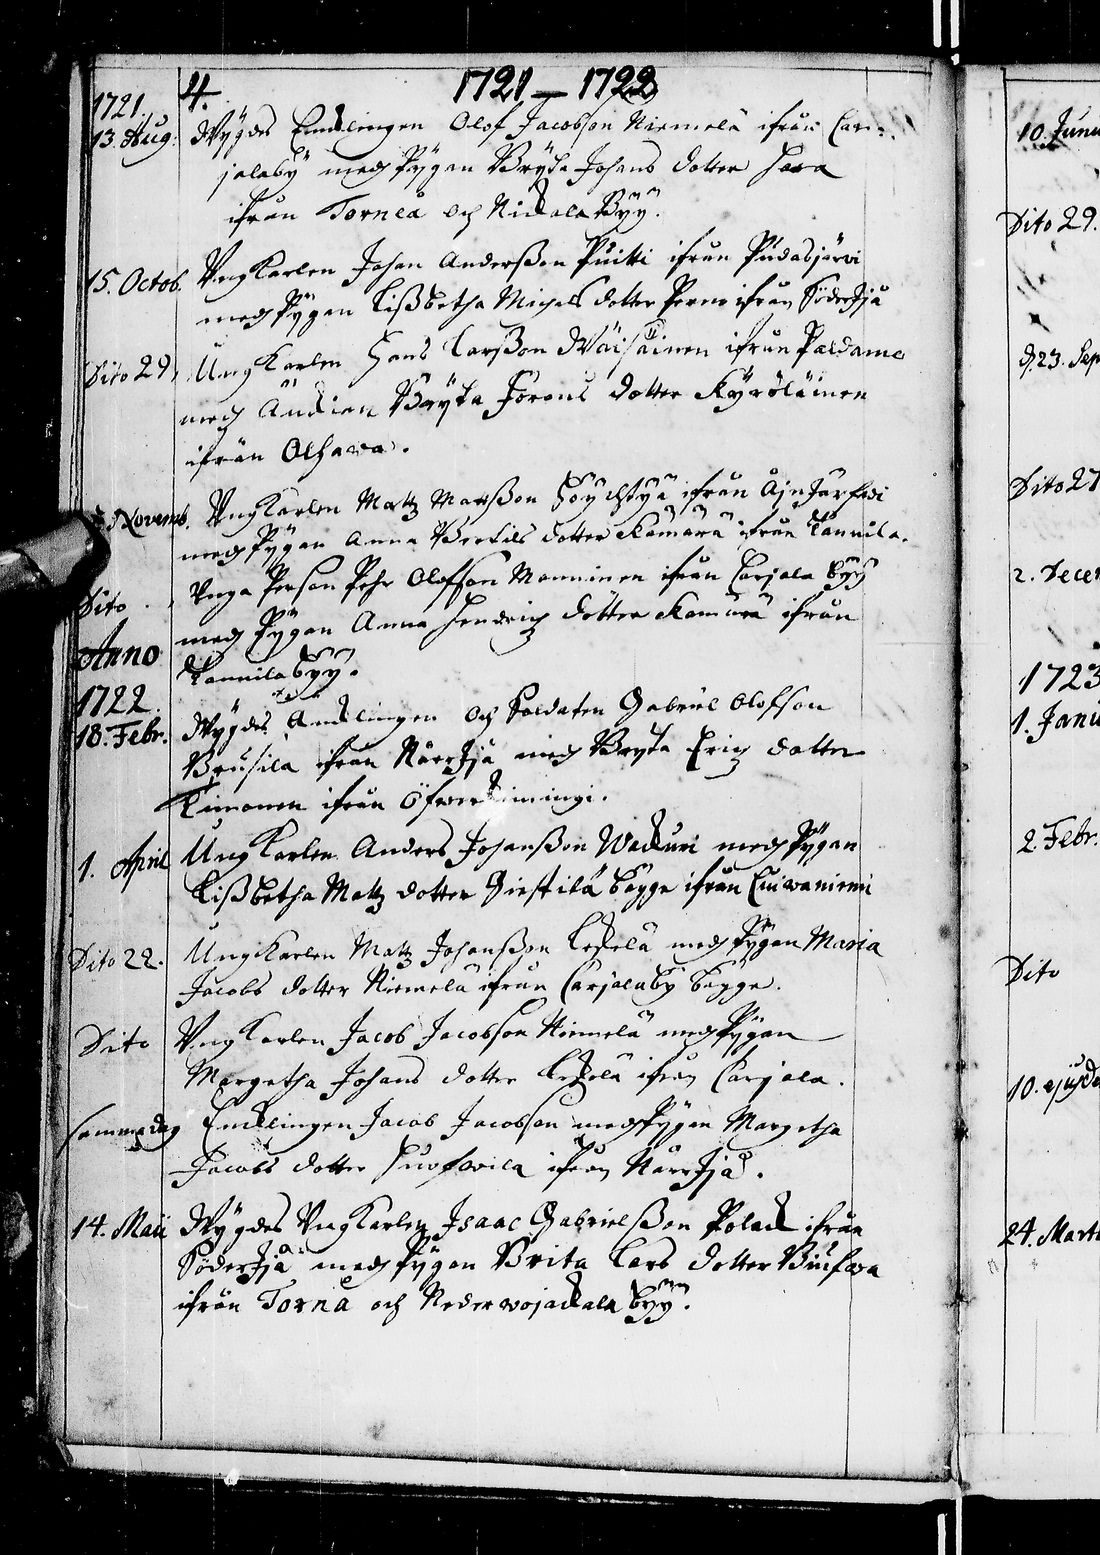 4.
1721 — 1722
1721.
13. Aug: Wÿgdes Encklingen Olof Jacobson Niemelä ifrån Car=
jalabÿ med Pÿgan Brÿta Johans dotter
ifrån Torneå och Nickala Bÿÿ.
15. Octob. UngKarlen Johan Anderßon Puitti ifrån Pudasjärvi
med Pÿgan Lißbetha Michels dotter ifrån Söder Ijå
Dito 29, Ung Karlen Hans Larßon Wäisäinen ifrån Paldamo
med Änckian Brÿta Jörans dotter Kÿröläinen
ifrån Olhava.
Novemb. UngKarlen Matz Matßon ifrån
med Pÿgan Anna Bertils dotter Kämärä ifrån Tannila.
Dito Unga Person Pehr Olofson Manninen ifrån Carjala Bÿÿ
med Pÿgan Anna Hendrich dotter Kämärä ifrån
Tannila bÿÿ.
Anno
1722.
18. Febr. Wÿgdes Encklingen och Soldaten Gabriel Olofson
Brusila ifrån Norr Ijå med Brÿta Erich dotter
Timonen ifrån Öfwerkiimingi.
1. April Ung Karlen Anders Johanßon Wackuri med Pÿgan
Lißbetha Matz dotter Giestilä bägge ifrån Cuiwaniemi
Dito 22. UngKarlen Matz Johanßon Keckelä med Pÿgan Maria
Jacobs dotter Niemelä ifrån Carjalabÿ bägge.
Dito UngKarlen Jacob Jacobson Niemelä med Pÿgan
Margetha Johans dotter Keckelä ifrån Carjala.
samma dag Encklingen Jacob Jacobson med Pÿgan Margetha
Jacobs dotter ifrån Norr Ijå.
14. Maii Wÿgdes UngKarlen Isaac Gabrielßon Polack ifrån
Söder Ijå med Pÿgan Brita Lars dotter
ifrån Tornå och Nederwojackala bÿÿ.
10. Juni
Dito 29.
d. 23. Sep
Dito 27
2. Decem
1723
1. Janu
2. Febr.
Dito
10. ejusde
24. Marti